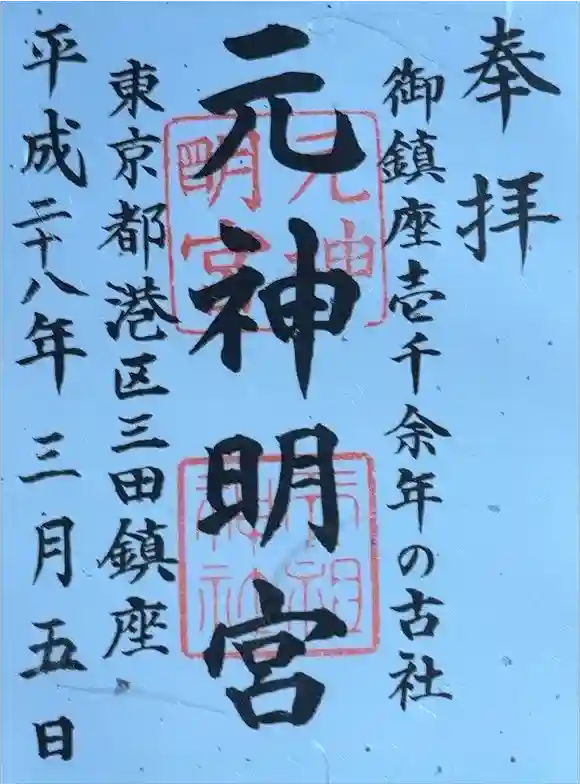 奉拝
御鎮座壱千余年の古社
元神明宮
元神
明宮
天祖
神社
東京都港区三田鎮座
平成二十八年三月五日